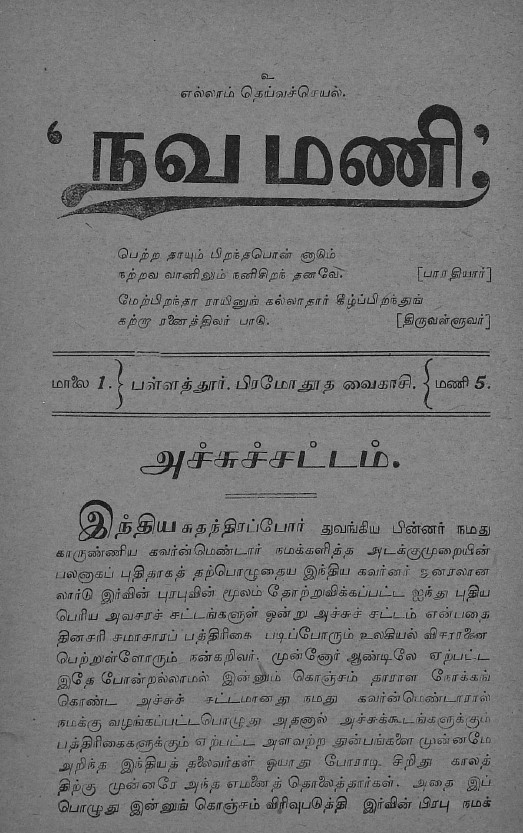 உ
எல்லாம் தெய்வச்செயல்.
‘நவமணி’
பெற்ற தாயும் பிறந்தபொன் னாடும்
நற்றவ வானினும் நனிசிறந் தனவே. [பாரதியார்]
மேற்பிறந்தா ராயினுங் கல்லாதார் கீழ்ப்பிறந்துங்
கற்றா ரனைத்திலர் பாடு. [திருவள்ளுவர்]
மாலை 1. } பள்ளத்தூர். பிரமோதூத வைகாசி. { மணி 5.
அச்சுச்சட்டம்.
இந்திய சுதந்திரப்போர் துவங்கிய பின்னர் நமது
காருண்ணிய கவர்ன்மெண்டார் நமக்களித்த அடக்குமுறையின்
பலனாகப் புதிதாகத் தற்பொழுதைய இந்திய கவர்னர் ஜனரலான
லார்டு இர்வின் புரபுவின் மூலம் தோற்றுவிக்கப்பட்ட ஐந்து புதிய
பெரிய அவசரச் சட்டங்களுள் ஒன்று அச்சுச் சட்டம் என்பதை
தினசரி சமாசாரப் பத்திரிகை படிப்போரும் உலகியல் விசாரணை
பெற்றுள்ளோரும் நன்கறிவர். முன்னோர் ஆண்டிலே ஏற்பட்ட
இதே போன்றல்லாமல் இன்னும் கொஞ்சம் தாராள நோக்கங்
கொண்ட அச்சுச் சட்டமானது நமது கவர்ன்மெண்டாரால்
நமக்கு வழங்கப்பட்டபொழுது அதனால் அச்சுக்கூடங்களுக்கும்
பத்திரிகைகளுக்கும் ஏற்பட்ட அளவற்ற துன்பங்களை முன்னமே
அறிந்த இந்தியத் தலைவர்கள் ஓயாது போராடி சிறிது காலத்
திற்கு முன்னரே அந்த எமனைத் தொலைத்தார்கள். அதை இப்
பொழுது இன்னுங் கொஞ்சம் விரிவுபடுத்தி இர்வின் பிரபு நமக்